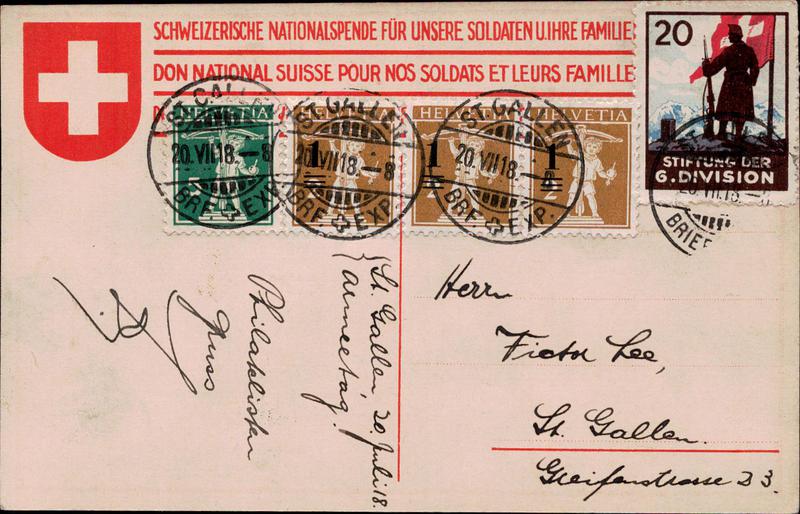 SCHWEIZERISCHE NATIONALSPENDE FÜR UNSERE SOLDATEN U.IHRE FAMILIE
DON NATIONAL SUISSE POUR NOS SOLDATS ET LEURS FAMILLE
20
STIFTUNG DER
6.DIVISION
HELVETIA
HELVETIA
1
1
1
2
2
ST. GALLEN
20.VII.18.-8
BRF. EXP.
ST. GALLEN
20.VII.18.-8
BRF. EXP.
ST. GALLEN
20.VII.18.-8
BRF. EXP.
20.VII.18.-8
BRIEF
St. Gallen 20. Juli 18.
Armeetag.
Philatelisten
Gruss
Herrn
Victor Lee,
St. Gallen.
Greifenstrasse 23.